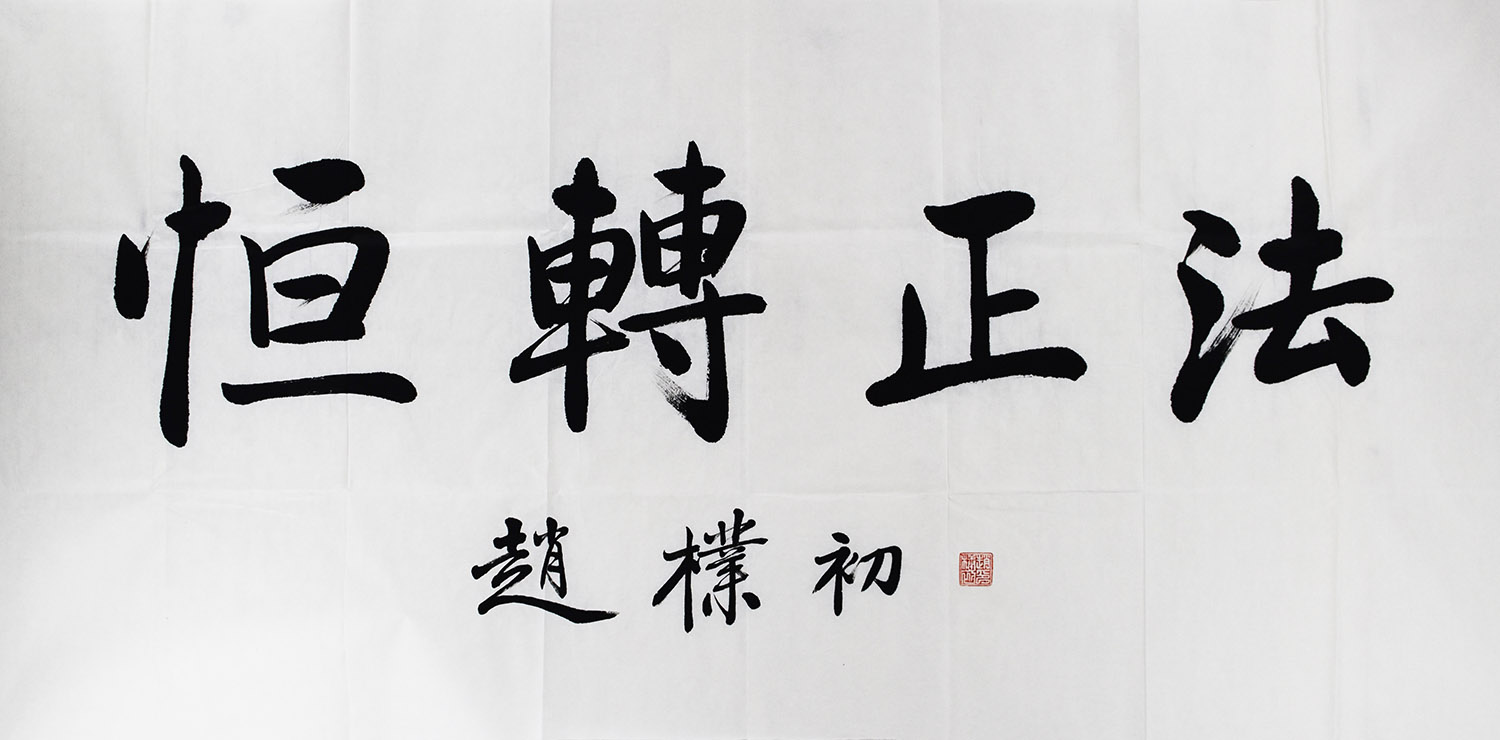 恒轉正法
趙樸初